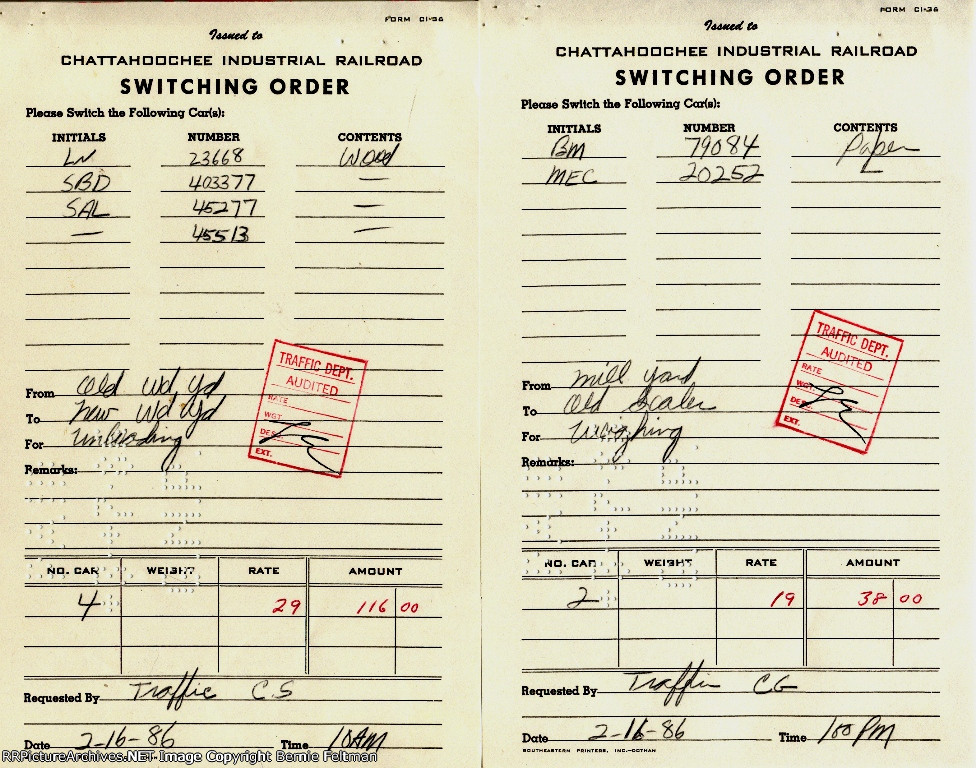 FORM CI-36
Issued to
CHATTAHOOCHEE INDUSTRIAL RAILROAD
SWITCHING ORDER
Please Switch the Following Car(s):
INITIALS NUMBER CONTENTS
LN 23668 Wood
SBD 403377 —
SAL 45277 —
— 45513 —
From Old Wd Yd
To New Wd Yd
For Unloading
Remarks:
TRAFFIC DEPT.
AUDITED
RATE
WGT.
DES.
EXT.
NO. CAR WEIGHT RATE AMOUNT
4 29 116 00
Requested By Traffic C.S
Date 2-16-86 Time 10AM
FORM CI-36
Issued to
CHATTAHOOCHEE INDUSTRIAL RAILROAD
SWITCHING ORDER
Please Switch the Following Car(s):
INITIALS NUMBER CONTENTS
BM 79084 Paper
MEC 20252 —
From Mill Yard
To Old Scales
For Weighing
Remarks:
TRAFFIC DEPT.
AUDITED
RATE
WGT.
DES.
EXT.
NO. CAR WEIGHT RATE AMOUNT
2 19 38 00
Requested By Traffic CG
Date 2-16-86 Time 100 PM
SOUTHEASTERN PRINTERS, INC.-DOTHAN
RRPictureArchives.NET Image Copyright Bernie Feltman